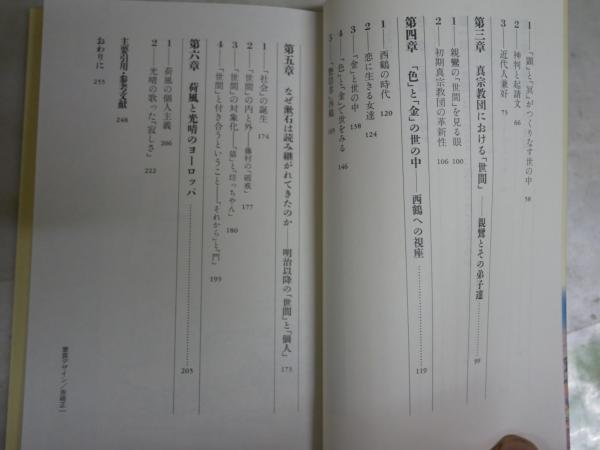 1 「顕」と「冥」がつくりなす世の中 58
2 神判と起請文 66
3 近代人兼好 75
第三章 真宗教団における「世間」——親鸞とその弟子達 99
1 親鸞の「世間」を見る眼 100
2 初期真宗教団の革新性 106
第四章 「色」と「金」の世の中——西鶴への視座 119
1 西鶴の時代 120
2 恋に生きる女達 124
3 「金」と世の中 138
4 「色」と「金」で世をみる 146
5
第五章 なぜ漱石は読み継がれてきたのか——明治以降の「世間」と「個人」 173
1 「社会」の誕生 174
2 「世間」の内と外——藤村の『破戒』 177
3 「世間」の対象化——『猫』と『坊っちゃん』 180
4 「世間」と付き合うということ——『それから』と『門』 193
第六章 荷風と光晴のヨーロッパ 205
1 荷風の個人主義 206
2 光晴の歌った「寂しさ」 222
主要引用・参考文献 248
おわりに 255